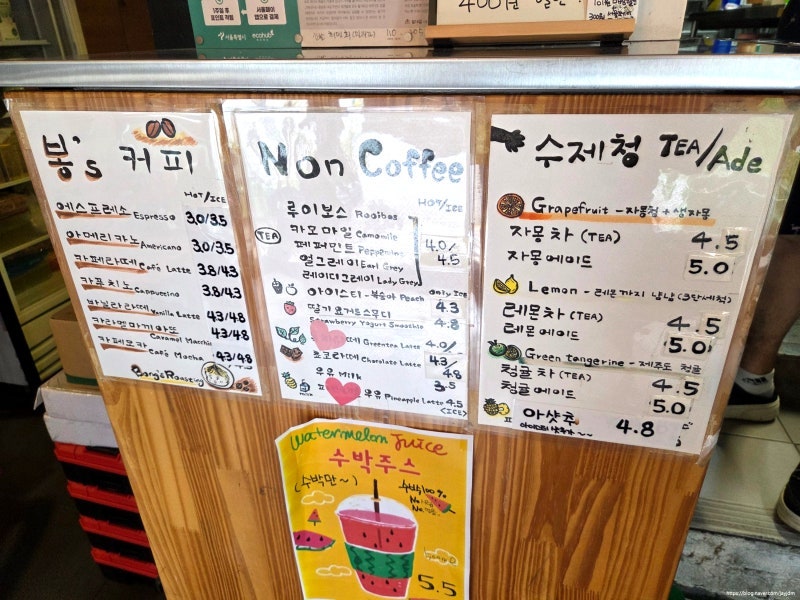 1주일 후
포인트 적립
서울페이
앱으로 결제
서울특별시 ecohub
400원 할인!
300원
봉's 커피
HOT/ICE
에스프레소 Espresso 3.0/3.5
아메리카노 Americano 3.0/3.5
카페라떼 Café Latte 3.8/4.3
카푸치노 Cappuccino 3.8/4.3
바닐라라떼 Vanilla Latte 4.3/4.8
카라멜마끼아또 Caramel Macchi 4.3/4.8
카페모카 Café Mocha 4.3/4.8
Bong's Roasting
Non Coffee
HOT/ICE
루이보스 Rooibos
TEA 카모마일 Camomile
페퍼민트 Peppermint 4.0/4.5
얼그레이 Earl Grey
레이디그레이 Lady Grey
아이스티-복숭아 Peach Only Ice 4.3
딸기 요거트 스무디
Strawberry Yogurt Smoothie 4.8
Greentea Latte 4.0/
초코라떼 Chocolate Latte 4.3/4.8
우유 Milk 3.5
우유 Pineapple Latte 4.5
<ICE>
수제청 TEA/Ade
Grapefruit - 자몽청+생자몽
자몽차 (TEA) 4.5
자몽에이드 5.0
Lemon - 레몬까지 냠냠 (3단세척)
레몬차 (TEA) 4.5
레몬에이드 5.0
Green tangerine - 제주도 청귤
청귤차 (TEA) 4.5
청귤에이드 5.0
아샷추 4.8
Watermelon Juice
수박주스
(수박만~)
수박100%
No
No
5.5
https://blog.naver.com/jayjdm